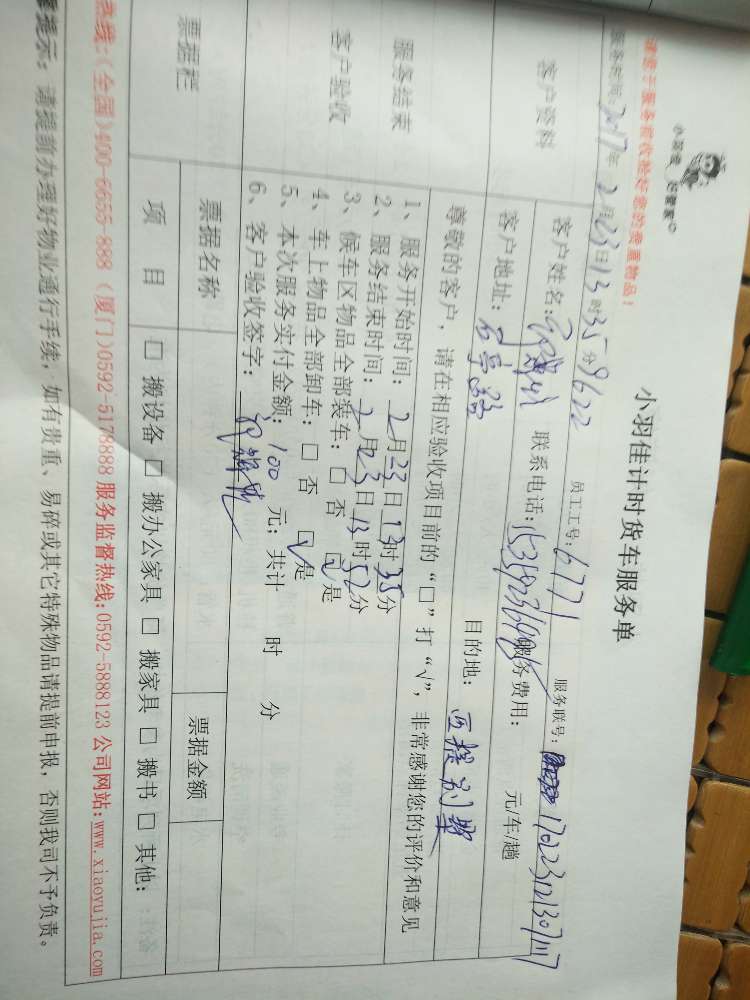 小羽佳计时货车服务单
小羽佳 好管家
请您于服务前收拾好您的贵重物品!
服务时间:2017年2月23日13时35分 9622 员工工号:6771 服务联号:170223121307117
客户资料
客户姓名: 联系电话: 服务费用: 元/车/趟
客户地址: 目的地: 别墅
服务结束
客户验收
尊敬的客户,请在相应验收项目前的“□”打“√”,非常感谢您的评价和意见
1、服务开始时间:2月23日13时35分
2、服务结束时间:2月23日13时52分
3、候车区物品全部装车:□ 否 ☑是
4、车上物品全部卸车:□ 否 ☑是
5、本次服务实付金额:100 元;共计 时 分
6、客户验收签字:
票据栏
票据名称 票据金额
项 目 □ 搬设备 □ 搬办公家具 □ 搬家具 □ 搬书 □ 其他:
热线:(全国)400-6655-888 (厦门)0592-5178888 服务监督热线:0592-5888123 公司网站:www.xiaoyujia.com
提示: 请提前办理好物业通行手续,如有贵重、易碎或其它特殊物品请提前申报,否则我司不予负责。